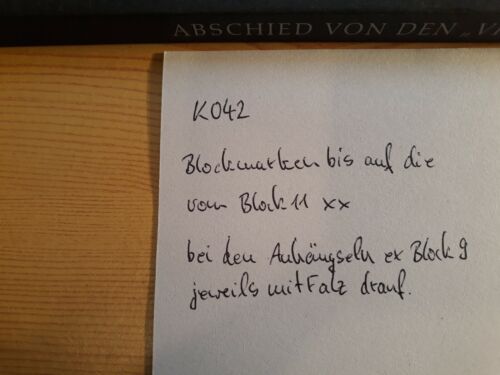 ABSCHIED VON DEN „V
K042
Blockmarken bis auf die
vom Block 11 xx
bei den Anhängseln ex Block 9
jeweils mit Falz drauf.